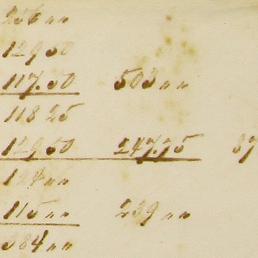 256 " "
129 50
117.50 503 " "
118 25
129 50 247.75 37
124 " "
115 " " 239 " "
384 " "